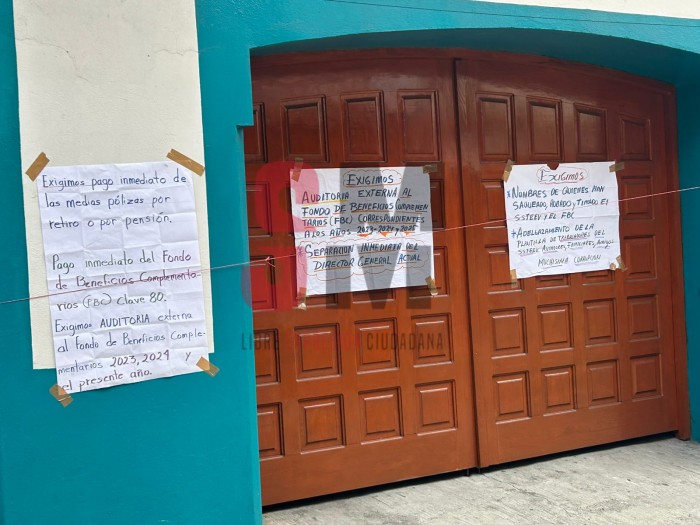 Exigimos pago inmediato de
las medias pólizas por
retiro o por pensión.
Pago inmediato del Fondo
de Beneficios Complementa-
rios (FBC) clave 80.
Exigimos AUDITORIA externa
al Fondo de Beneficios Comple-
mentarios 2023, 2024 y
el presente año.
EXIGIMOS
AUDITORIA EXTERNA AL
FONDO DE BENEFICIOS COMPLEMEN-
TARIOS (FBC) CORRESPONDIENTES
A LOS AÑOS 2023-2024 y 2025
* SEPARACION INMEDIATA DEL
DIRECTOR GENERAL ACTUAL
EXIGIMOS
* NOMBRES DE QUIENES HAN
SAQUEADO, ROBADO, TIMADO EL
SSTEEV y EL FBC
* ADELGAZAMIENTO DE LA
PLANTILLA DE
SSTEEV
MUCHISIMA CORRUPCION
SM
LIBRE EXPRESIÓN CIUDADANA